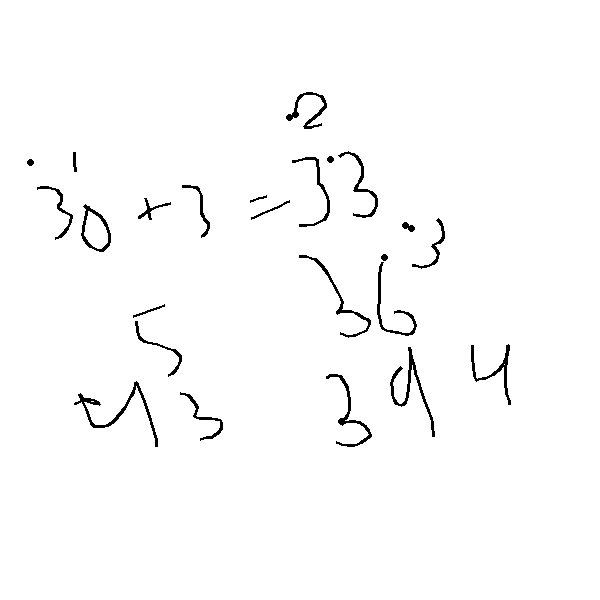 2
1
30 + 3 = 33
3
36
5
43 39 4